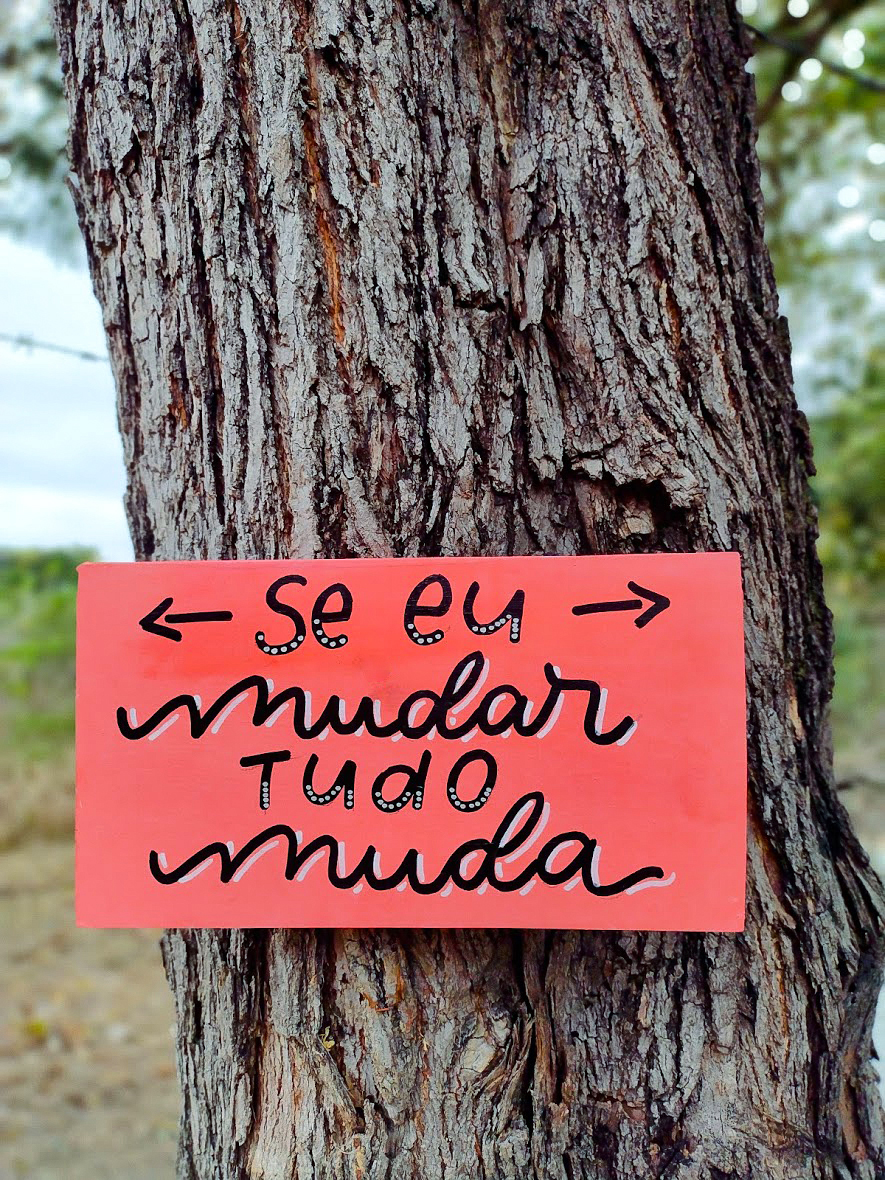 ← Se eu →
mudar
Tudo
muda